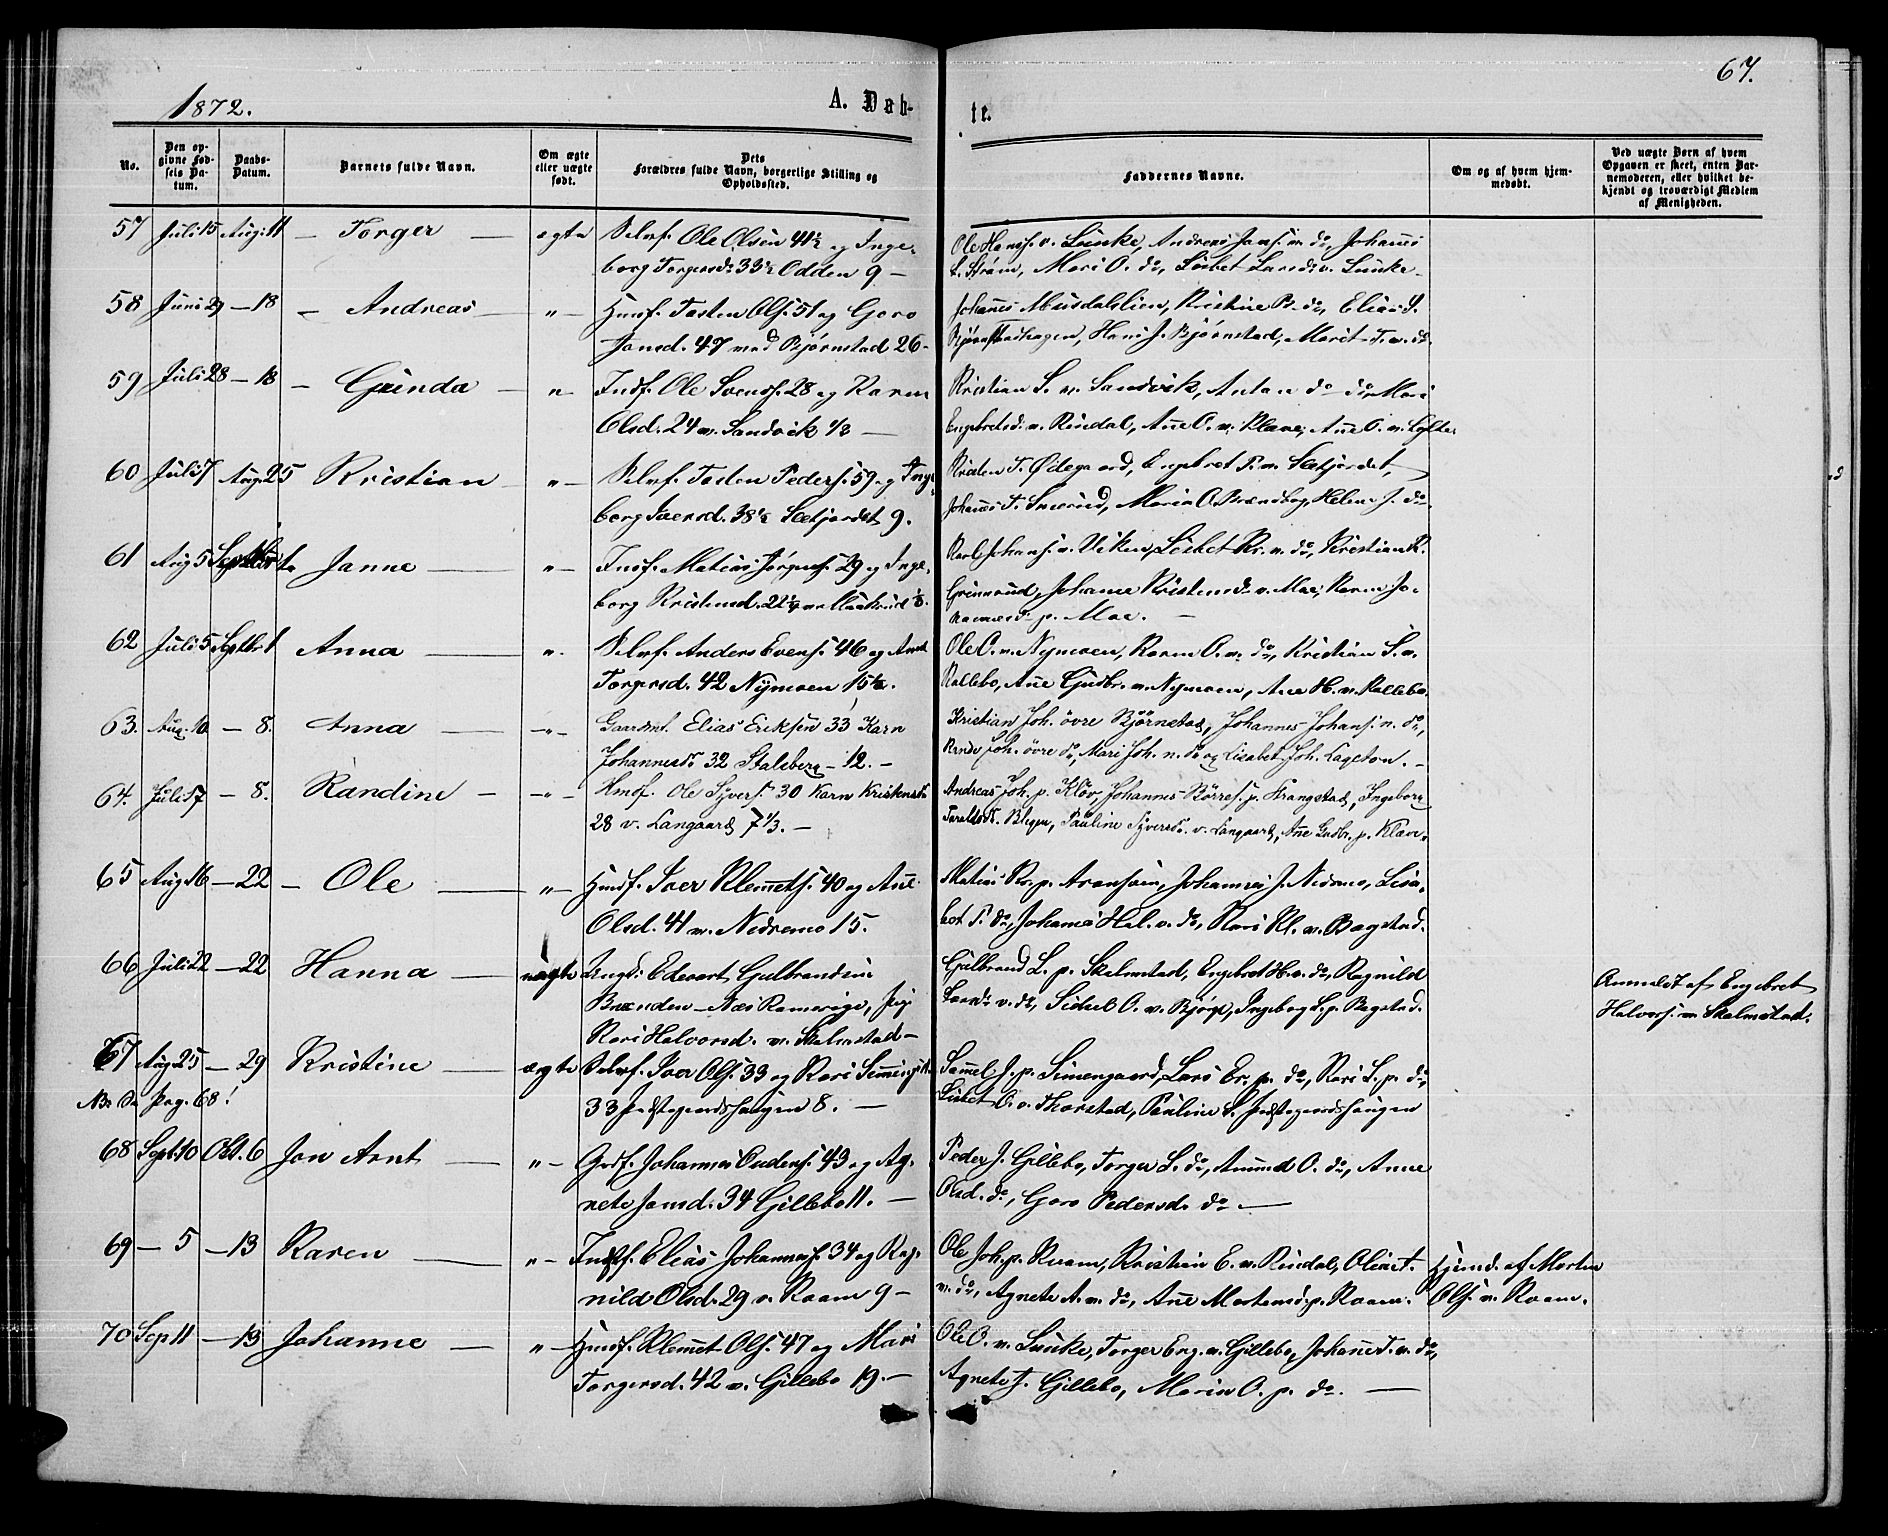 1872.
A. Døb-
te.
67.
No.
Den op-
givne Fød-
sels Da-
tum.
Daabs-
Datum.
Barnets fulde Navn.
Om ægte
eller uægte
født.
Dets
Forældres fulde Navn, borgerlige Stilling og
Opholdssted.
Faddernes Navne.
Om og af hvem hjem-
medøbt.
Ved uægte Børn af hvem
Opgaven er skeet, enten Bar-
nemoderen, eller hvilket be-
kjendt og troværdigt Medlem
af Menigheden.
57 Juli 15 Aug: 11 — Torger — ægte Selvf. Ole Olsen 41½ og Inge-
borg Torgersd: 33½ Odden 9 —
Ole Hansf. v. Lunke, Andreas Jansf. v. do, Johanes
L. Strøm, Mari O. do, Lisbet Larsd: v. Lunke.
58 Juni 29 — 18 — Andreas — " — Husf. Tosten Olsf. 51 og Goro
Jonsd. 47 ved Bjørnstad 26 —
Johanes Musdalslien, Kristine P. do, Elias S.
Bjørnstadhagen, Hans J. Bjørnstad, Marit T. v. do
59 Juli 28 — 18 — Gunda — " — Indf. Ole Svendsf. 28 og Karen
Olsd. 24 v. Sandvik ½ —
Kristian S. v. Sandvik, do Mari
Engebretsd: v. Rindal, Ane O. v. Klave, Ane O. v.
60 Juli 7 Aug. 25 Kristian — " — Selvf. Tosten Pedersf. 59 og Inge-
borg Iversd. 38½ Sletjordet 9.
Kristen T. Ødegaard, Engebret P. v. Sletjordet,
Johanes T. Snerud, Maria O. Brændbog, Helene J. do
61 Aug 5 Janne — " — Indf. Matias Jørgensf. 29 og Inge-
borg Kristensd. 22¼
Karl Johansf. v. Viken, Lisbet Kr. v. do, Kristian K.
Grimsrud, Johanne Kristensd: v. Moe, Karen Jo-
hannesd: p. Moe. —
62 Juli 5 Septbr 1 Anna — " Selvf. Anders Evensf. 46 og Anne
Torgersd. 42 Nymoen 15½.
Ole O. v. Nymoen, Karen O. v. do, Kristian S. v.
Kallebo, Ane Gudbr. v. Nymoen, Ane H. v. Kallebo.
63. Aug. 10 — 8. Anna — " — Gaardmd. Elias Eriksen 33 Karn
Johannesdr 32 Stalsberg — 12. —
Kristian Joh. övre Bjørnstad, Johannes Johansf. n. do,
Rande Joh. övre do, Mari Joh. n. do og Lisabet Joh. Lageton. —
64. Juli 17 — 8. Randine — " — Hmdf. Ole Syversf 30 Karn Kristensdr
28 v. Langaard 7⅓. —
Andreas Joh. p. Kløv, Johannes Børresf. p. Krangstad, Ingeborg
Taraldsdr. Blegen, Pauline Syversdr. v. Langaard, Ane Gudbr. p. Klave.
65 Aug 16 — 22 — Ole — " — Husf. Iver Klemetsf. 40 og Ane
Olsd. 41 v. Nedremo 15.
Matias Kr. p. Aronsvin, Johannes J. Nedremo, Lisa-
bet T. do, Johanes Hal. v. do, Kari Kl. v. Bagstad.
66 Juli 22 — 22 Hanna — uægte Ungk: Edevart Gulbrandsen
Brænden — Næs Romerige, Pige
Kari Halvorsd. v. Skelmstad —
Gulbrand L. p. Skelmstad, Engebret H. v. do, Ragnild
Larsd: v. do, Sidsel O. v. Bjørge, Ingeborg L. p. Bagstad.
Anmeldt af Engebret
Halvorsf. v. Skelmstad.
67 Aug 25 — 29 Kristine — ægte Selvf. Iver Olsf. 33 og Kari
33 Prestegaardshaugen 8. —
NB se Pag. 68!
Samuel J. p. Simengaard, Lars Er. p. do, Kari L. p. do,
Lisbet O. v. Thorstad, Pauline L. Prestegaardshaugen
68 Septb. 10 Okt. 6 Jon Arnt — " — Grdf. Johannes Audensf. 43 og Ag-
nete Jonsd. 34 Gillebo 11. —
Peder J. Gillebo, Torger L. do, Amund O. do, Anne
Olsd. do, Goro Pedersd. do —
69 — 5 — 13 Karen — " — Indf. Elias Johannesf. 34 og Rag-
nild Olsd. 29 v. Roam 9 —
Ole Joh. p. Roam, Kristian E. v. Rindal, Oline T.
v. do, Agnete A. v. do, Ane Mortensd. p. Roam.
Hjemd. af Morten
Olsf. v. Roam.
70 Sep 11 — 13 Johanne — " — Husf. Klemet Olsf. 47 og Mari
Torgersd. 42 v. Gillebo 19. —
Ole O. v. Lunke, Torger Eng. v. Gillebo, Johane T. v. do,
Agnete J. Gillebo, Maria O. p. do. —